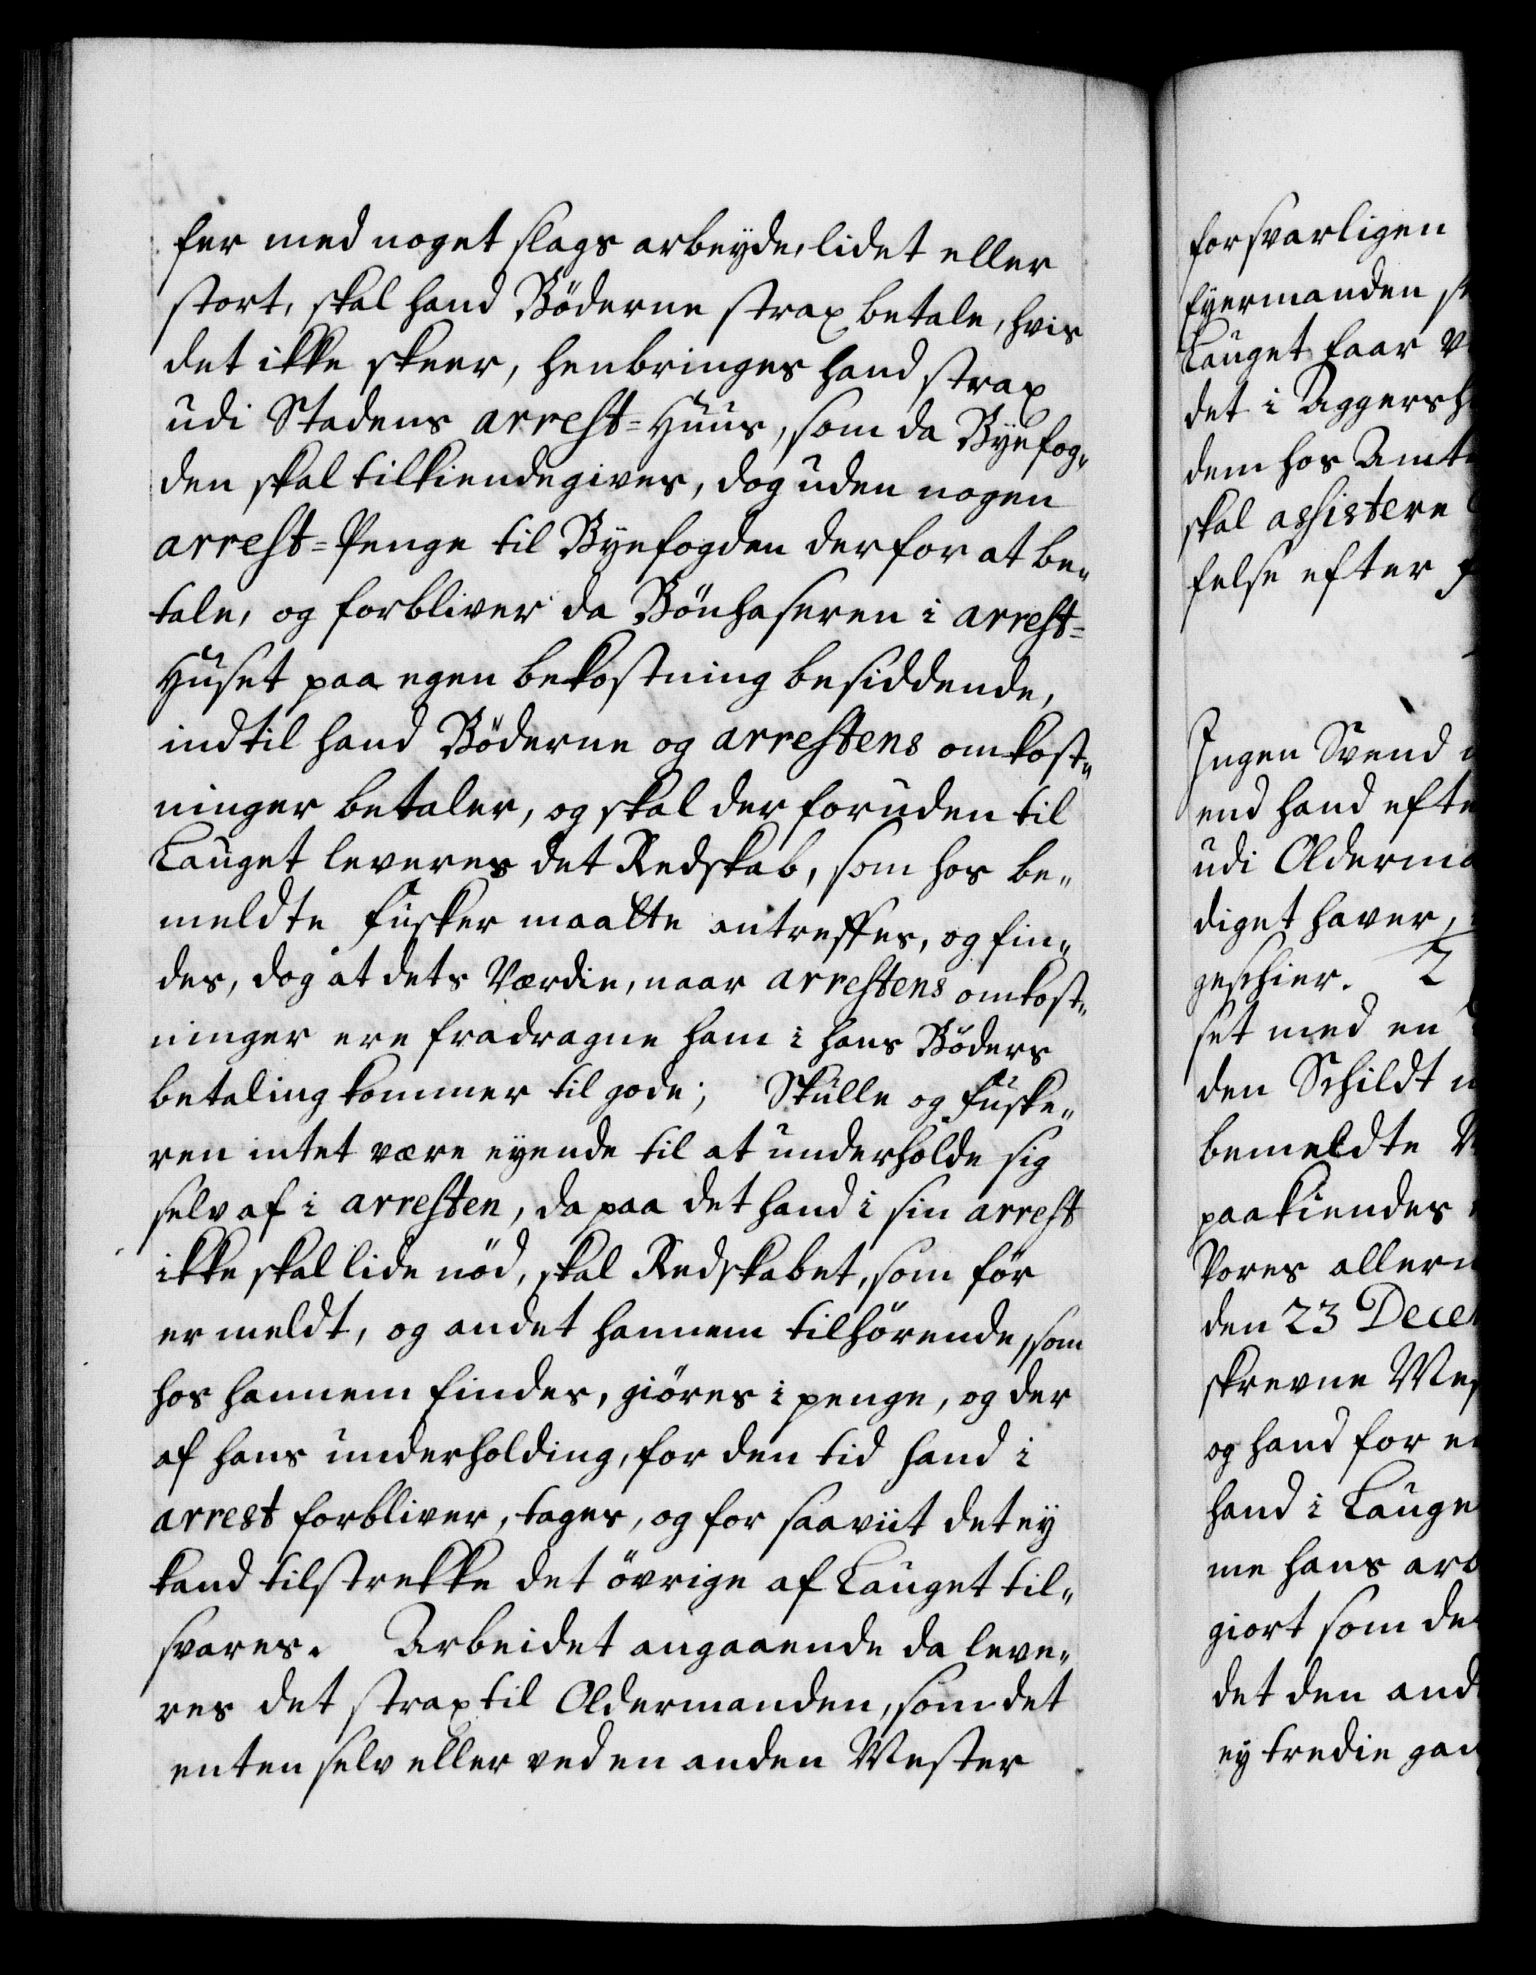 fer med noget slags arbeyde, lidet eller
stort, skal hand Böderne strax betale, hvis
det ikke skeer, henbringes hand strax
udi Stadens arrest-Huus, som da Byefog„
den skal tilkiendegives, dog uden nogen
arrest-Penge til Byefogden derfor at be„
tale, og forbliver da Bönhaseren i arrest-
Huset paa egen bekostning besiddende,
indtil hand Böderne og arrestens omkost„
ninger betaler, og skal der foruden til
Lauget leveres det Redskab, som hos be„
meldte fusker maatte antreffes, og fin„
des, dog at dets Værdie, naar arrestens omkost„
ninger ere fradragne ham i hans Böders
betaling kommer til gode; Skulle og fuske„
ren intet være eyende til at underholde sig
selv af i arresten, da paa det hand i sin arrest
ikke skal lide nöd, skal Redskabet, som før
er meldt, og andet hannem tilhörende, som
hos hannem findes, giöres i penge, og der
af hans underholding, for den tid hand i
arrest forbliver, tages, og for saaviit det ey
kand tilstrekke det övrige af Lauget til„
svares. Arbeidet angaaende da leve„
res det strax til Oldermanden, som det
enten selv eller ved en anden Mester
forsvarligen
Eyermanden
Lauget faar
det i Aggersh
dem hos Amt
skal assistere
felse efter
Ingen Svend
end hand efte
udi Olderma
diget haver,
geschier. 2
set med en
den Schildt
bemeldte
paakiendes
Vores allern
den 23 Decem
skrevne Mes
og hand for
hand i Lauge
me hans arb
giort som de
det den and
ey tredie gan